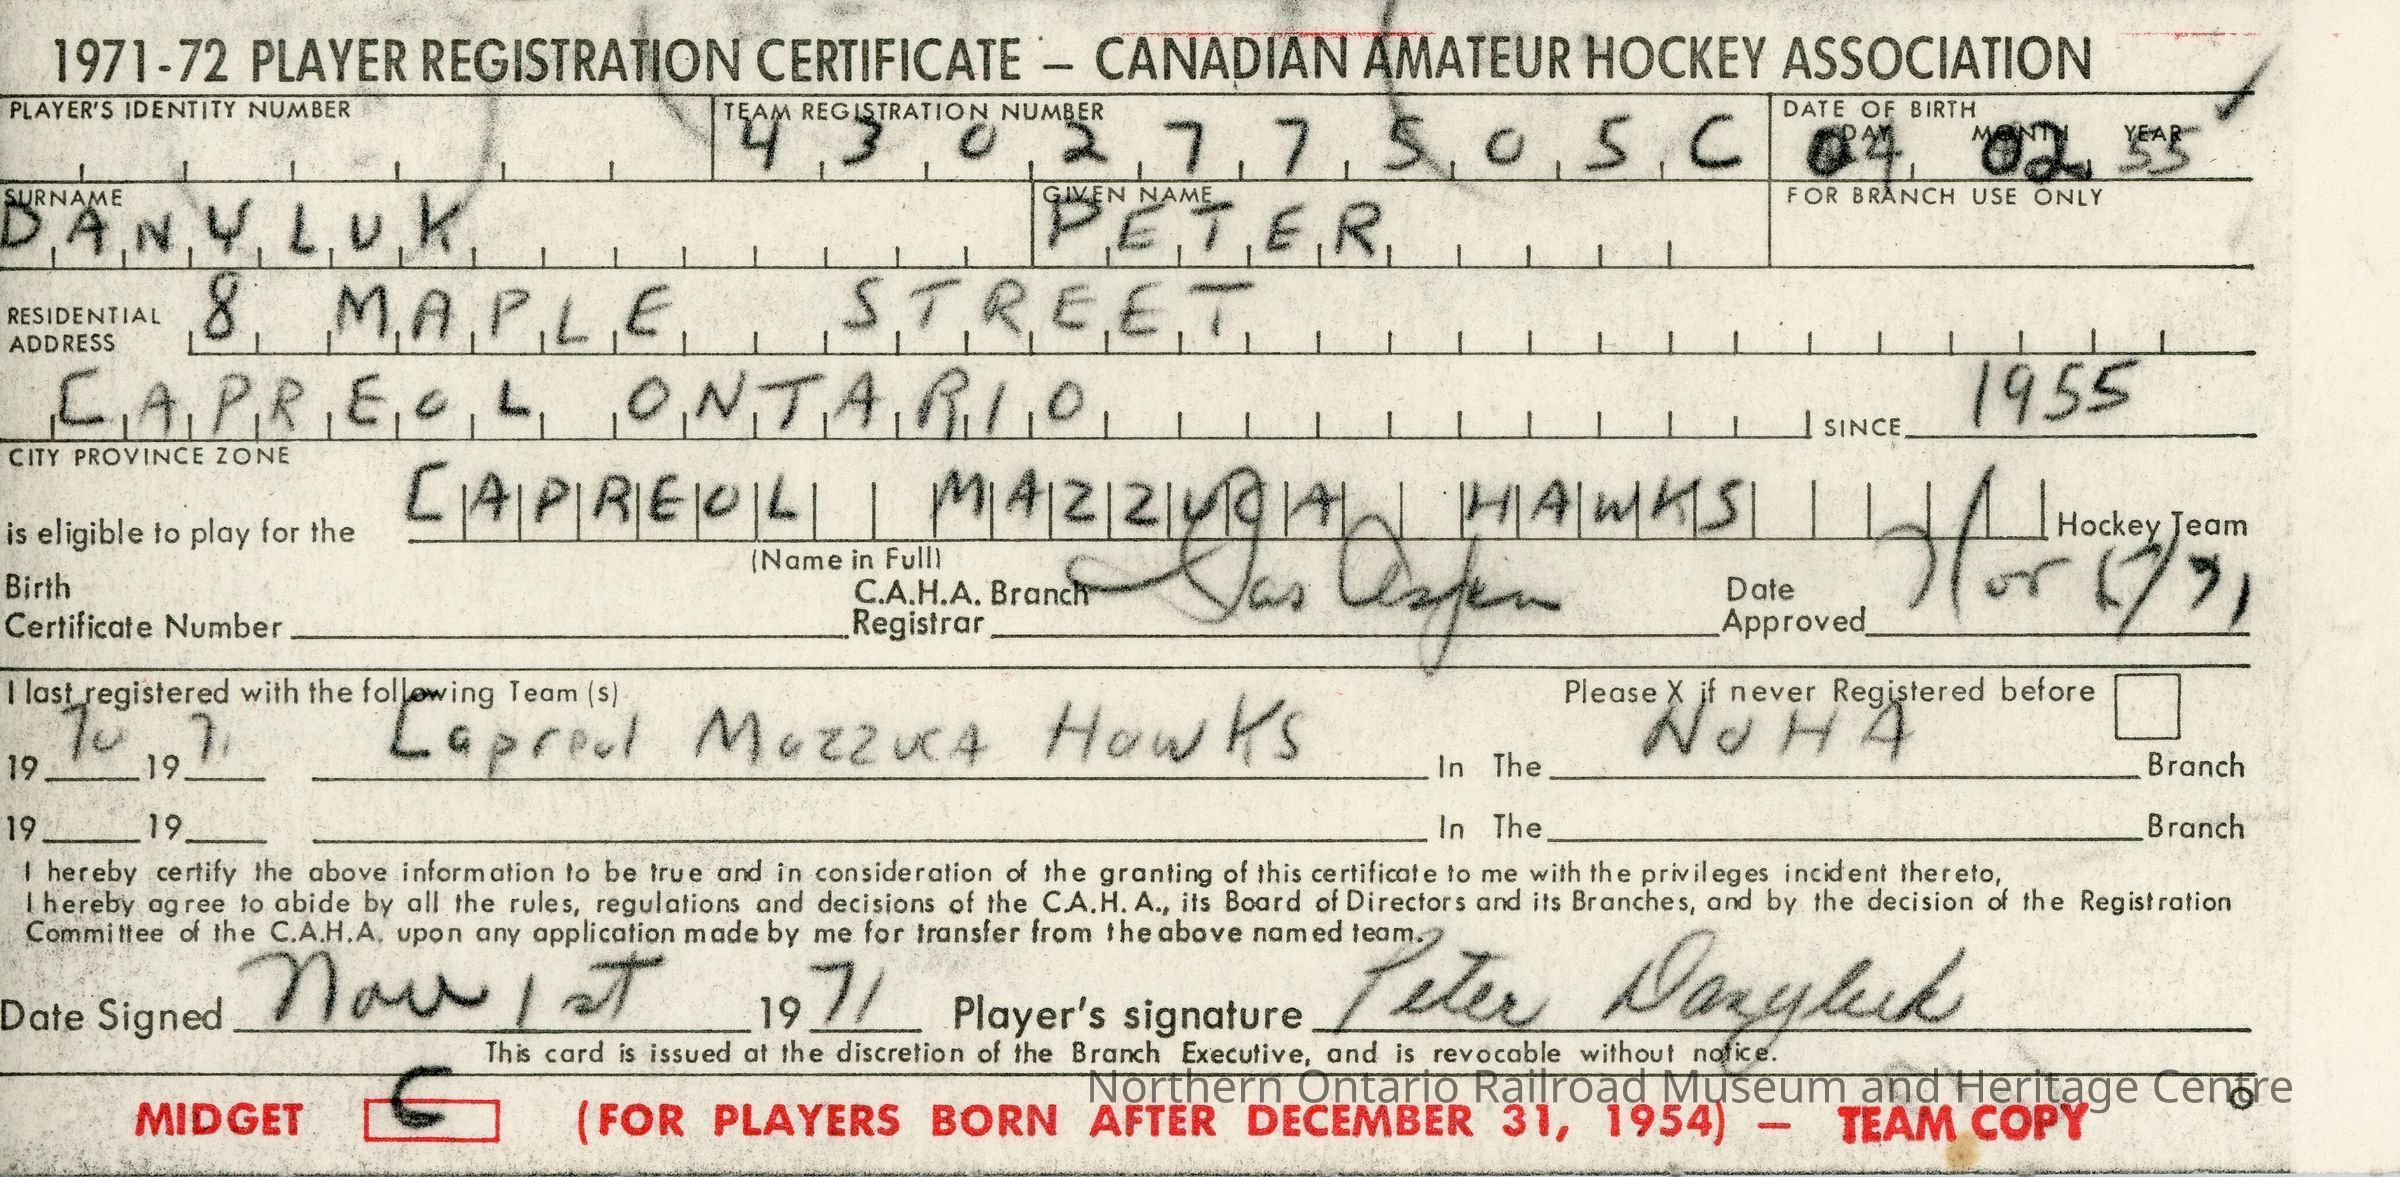 1971-72 PLAYER REGISTRATION CERTIFICATE – CANADIAN AMATEUR HOCKEY ASSOCIATION
PLAYER'S IDENTITY NUMBER TEAM REGISTRATION NUMBER DATE OF BIRTH
DAY MONTH YEAR
4302777505C 04 02 55
SURNAME GIVEN NAME FOR BRANCH USE ONLY
DANYLUK PETER
RESIDENTIAL ADDRESS 8 MAPLE STREET
CAPREOL ONTARIO SINCE 1955
CITY PROVINCE ZONE
is eligible to play for the CAPREOL MAZZUCA HAWKS Hockey Team
(Name in Full)
Birth Certificate Number C.A.H.A. Branch Registrar Date Approved /71
I last registered with the following Team (s) Please X if never Registered before
1970 1971 Capreol Mazzuca Hawks In The NOHA Branch
19 19 In The Branch
I hereby certify the above information to be true and in consideration of the granting of this certificate to me with the privileges incident thereto,
I hereby agree to abide by all the rules, regulations and decisions of the C.A.H.A., its Board of Directors and its Branches, and by the decision of the Registration
Committee of the C.A.H.A. upon any application made by me for transfer from the above named team.
Date Signed Nov 1st 1971 Player's signature Peter Danyluk
This card is issued at the discretion of the Branch Executive, and is revocable without notice.
Northern Ontario Railroad Museum and Heritage Centre
MIDGET C (FOR PLAYERS BORN AFTER DECEMBER 31, 1954) – TEAM COPY